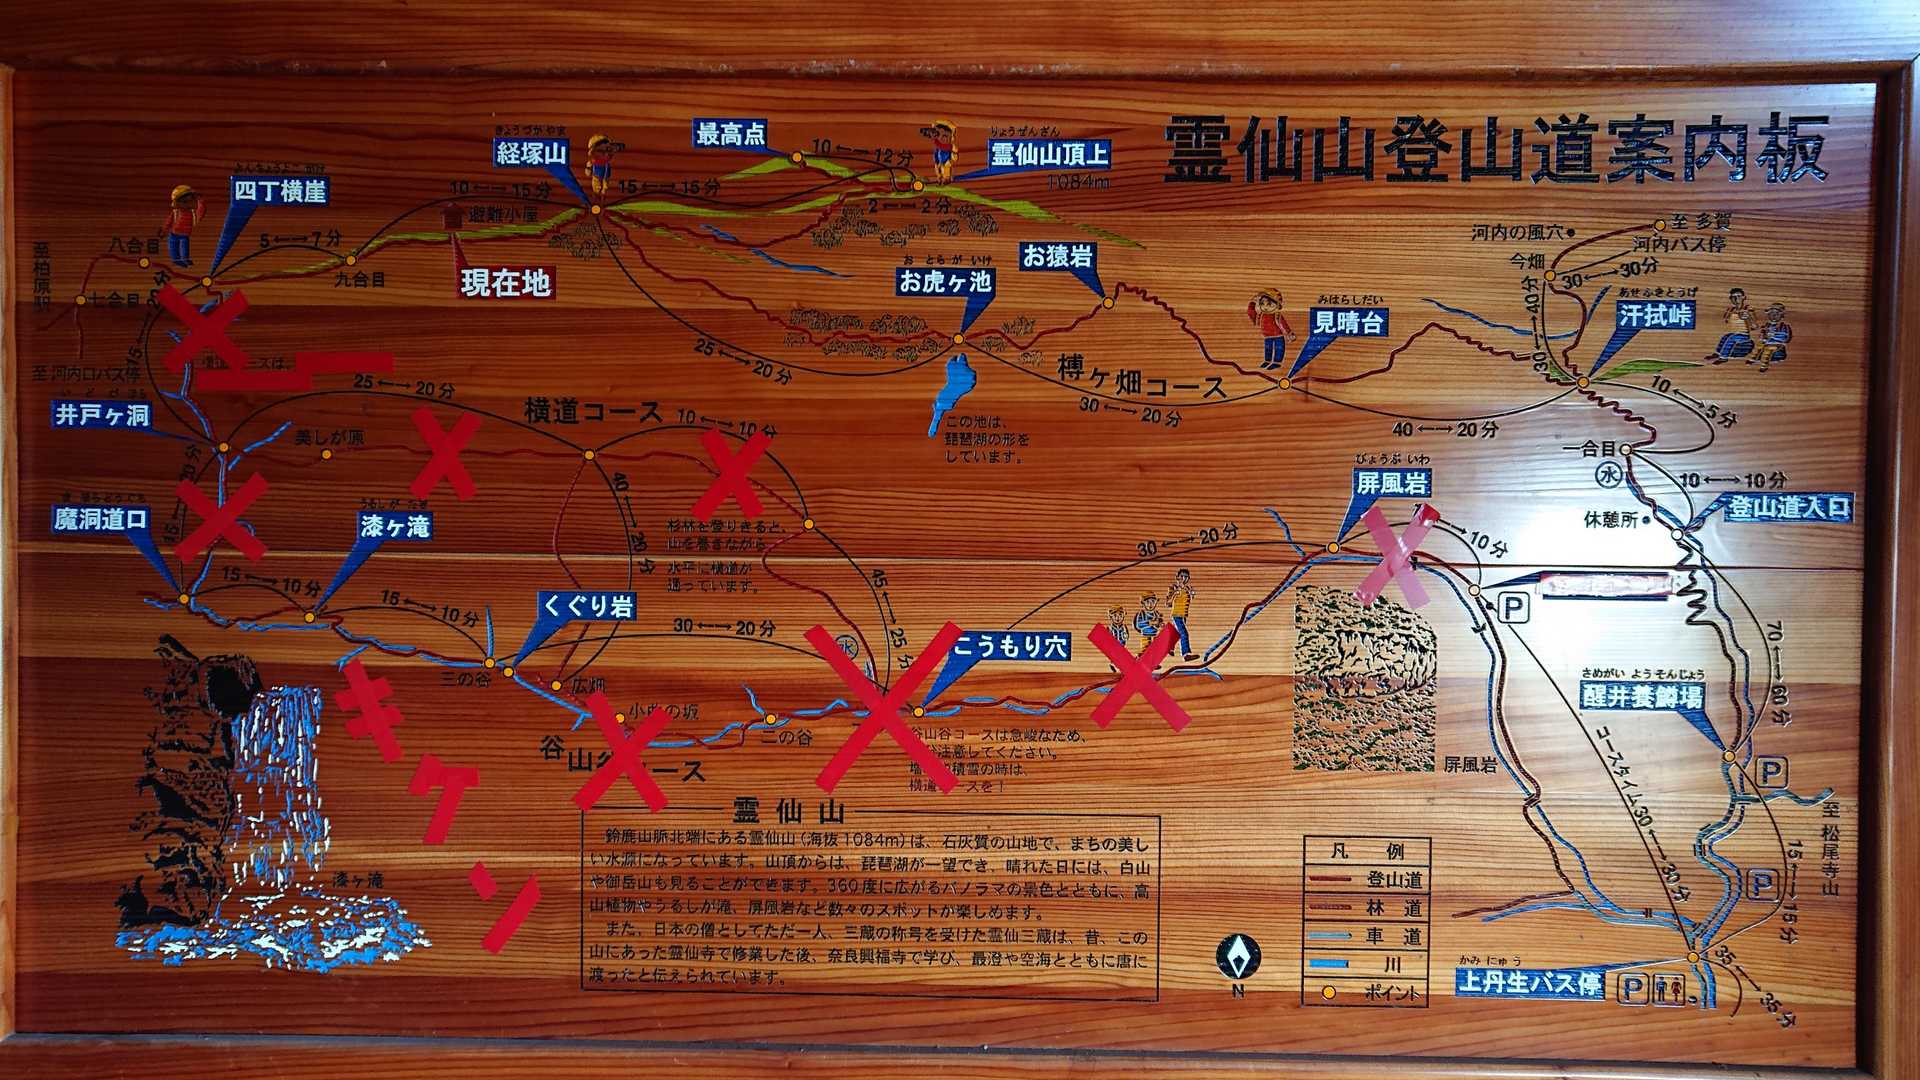 霊仙山登山道案内板
きょうづかやま
経塚山
最高点
10←→12分
りょうぜんざん
霊仙山頂上
1084m
四丁横崖
10←→15分
避難小屋
15←→15分
2←→2分
至柏原駅
八合目
七合目
5←→7分
九合目
現在地
おとらがいけ
お虎ヶ池
お猿岩
みはらしだい
見晴台
至多賀
河内の風穴
河内バス停
今畑
30←→30分
30←→40分
あせふきとうげ
汗拭峠
至河内口バス停
井戸ヶ洞
25←→20分
美しが原
横道コース
10←→10分
25←→20分
この池は、
琵琶湖の形を
しています。
榑ヶ畑コース
30←→20分
40←→20分
10←→5分
一合目
水
10←→10分
登山道入口
休憩所
びょうぶいわ
屏風岩
10分
魔洞道口
漆ヶ滝
40←→20分
杉林を登りきると、
山を巻きながら
水平に横道が
通っています。
15←→10分
15←→10分
くぐり岩
30←→20分
45←→25分
水
こうもり穴
30←→20分
P
70←→60分
三の谷
広畑
小曲の坂
二の谷
谷山谷コース
谷山谷コースは急峻なため、
注意してください。
積雪の時は、
横道コースを!
屏風岩
さめがいようそんじょう
醒井養鱒場
P
コースタイム30←→30分
至松尾寺山
15←→15分
P
キケン
漆ヶ滝
霊仙山
鈴鹿山脈北端にある霊仙山(海抜1084m)は、石灰質の山地で、まちの美し
い水源になっています。山頂からは、琵琶湖が一望でき、晴れた日には、白山
や御岳山も見ることができます。360度に広がるパノラマの景色とともに、高
山植物やうるしが滝、屏風岩など数々のスポットが楽しめます。
また、日本の僧としてただ一人、三蔵の称号を受けた霊仙三蔵は、昔、この
山にあった霊仙寺で修業した後、奈良興福寺で学び、最澄や空海とともに唐に
渡ったと伝えられています。
N
凡例
登山道
林道
車道
川
ポイント
かみにゅう
上丹生バス停
P
35←→35分